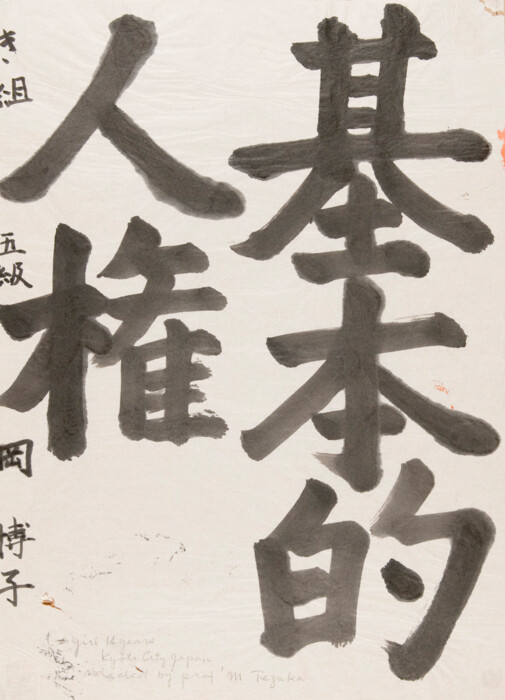 基本的
人権
組 五級 岡 博子
girl years
Kyoto City Japan
selected by prof M Tezuka